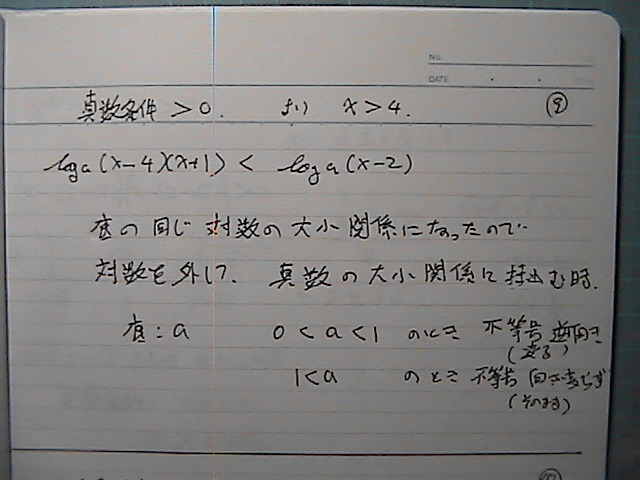 No.
DATE
真数条件 > 0. より x > 4. ⑨
log a (x-4)(x+1) < log a (x-2)
底の同じ対数の大小関係になったので
対数を外して、真数の大小関係に持込む時.
底:a 0 < a < 1 のとき 不等号 逆向き
(変る)
1 < a のとき 不等号 向き変らず
(そのまま)